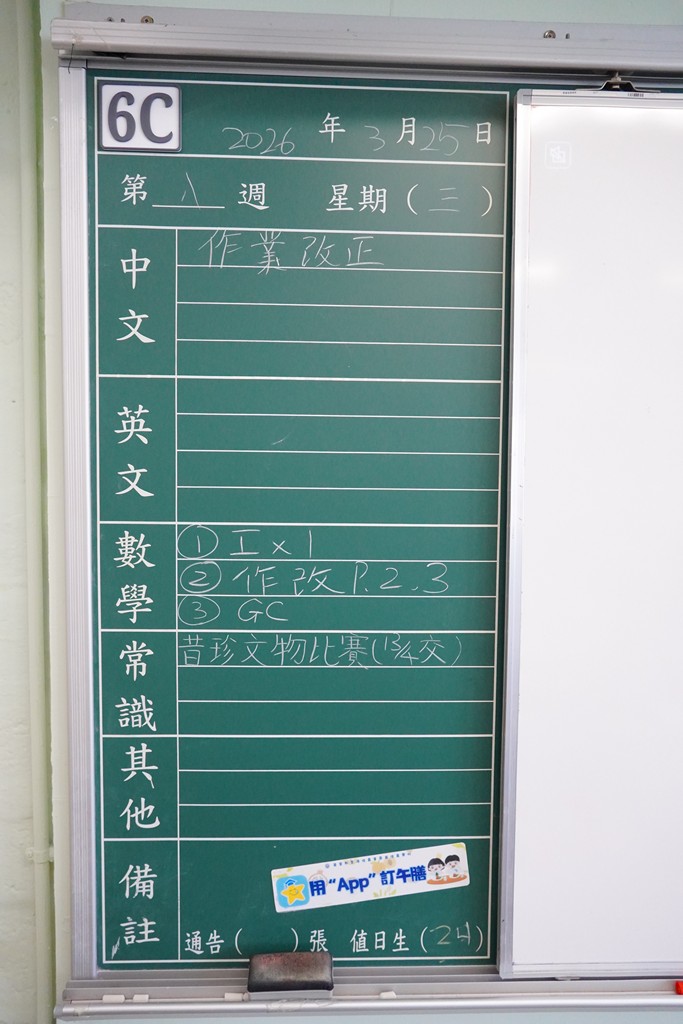 6C
2026 年 3 月 25 日
第 八 週 星期(三)
中文
作業改正
英文
數學
① 工x1
② 作改P.2.3
③ GC
常識
昔珍文物比賽(13/4交)
其他
備註
用“App”訂午膳
通告( )張 值日生(24)